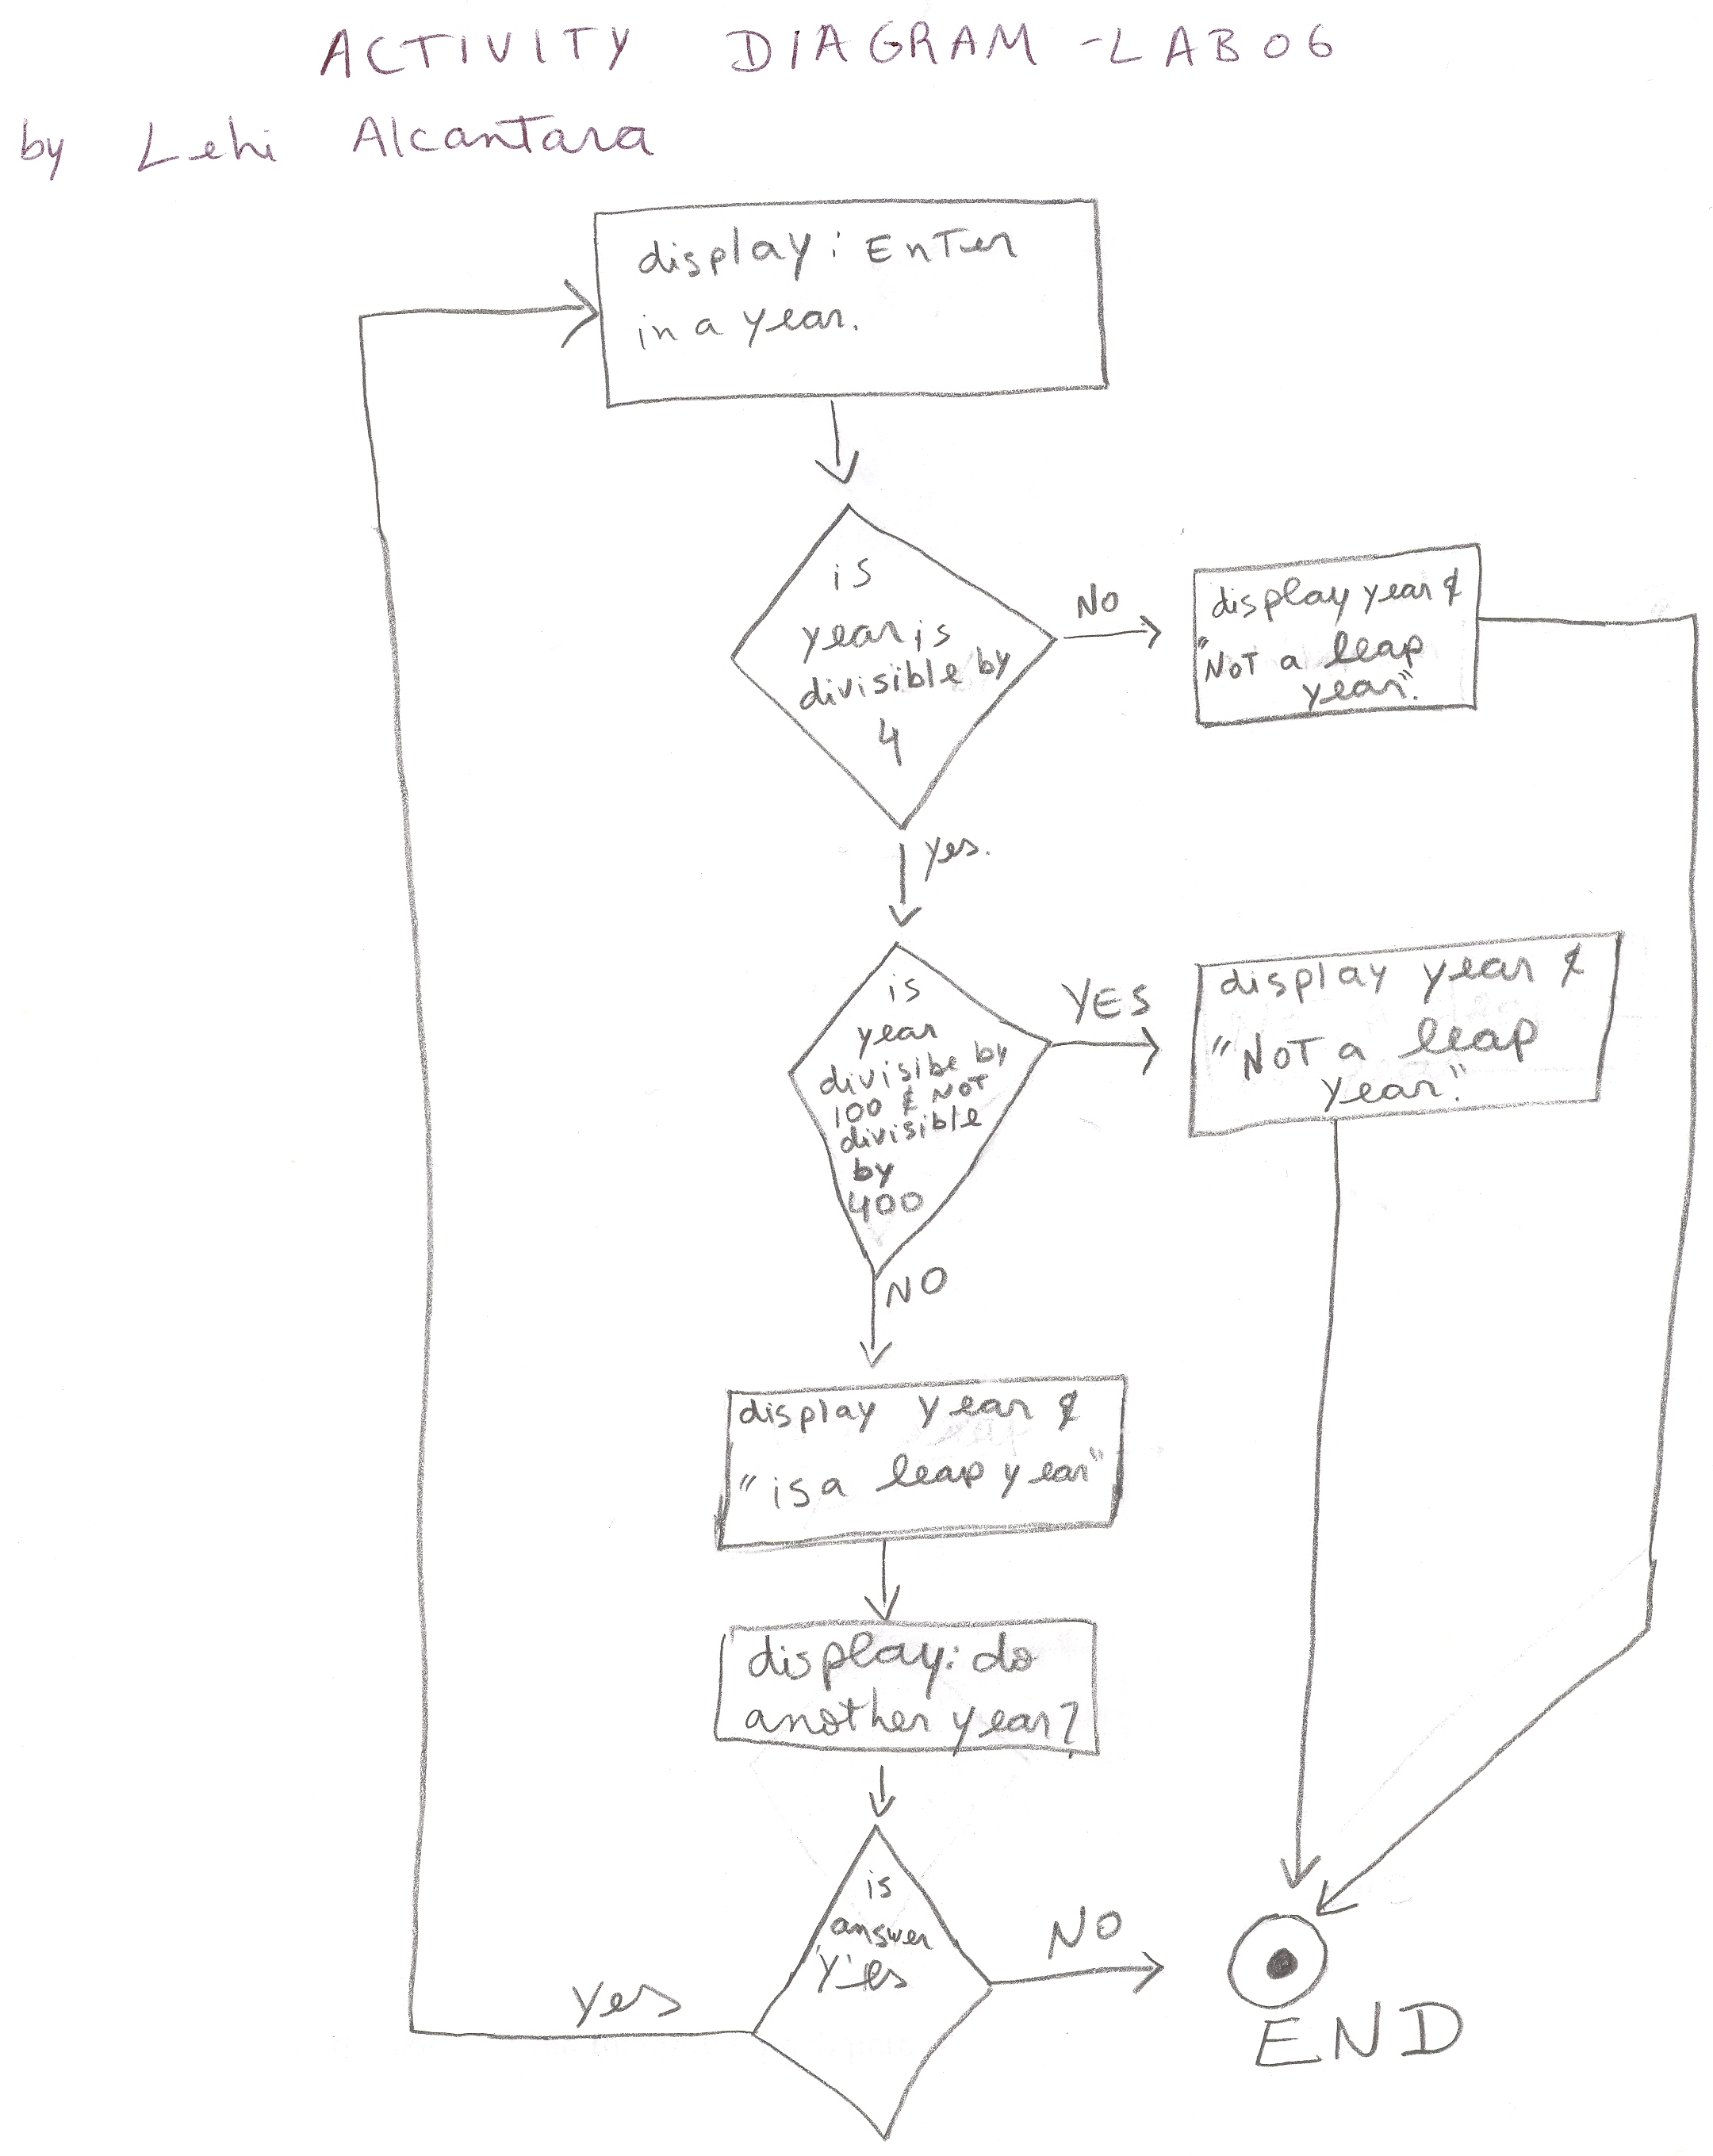 ACTIVITY DIAGRAM - LAB 06
by Lehi Alcantara
display: Enter
in a year.
is
year is
divisible by
4
NO
display year &
"NOT a leap
year".
yes.
is
year
divisibe by
100 & NOT
divisible
by
400
YES
display year &
"NOT a leap
year".
NO
display year &
"is a leap year"
display: do
another year?
is
answer
'Y'es
NO
yes
END